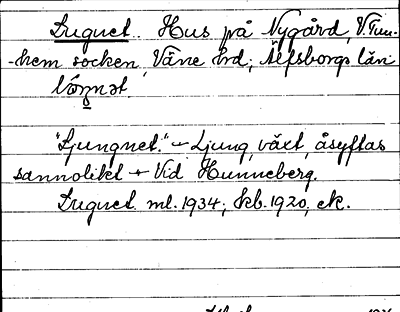 Lugnet. Hus på Nygård, V. Tun-
-hem socken, Väne hrd, Älfsborgs län
"Ljungnet." – Ljung, växt, åsyftas
sannolikt – Vid Hunneberg.
Lugnet ml. 1934; kb. 1920, ek.